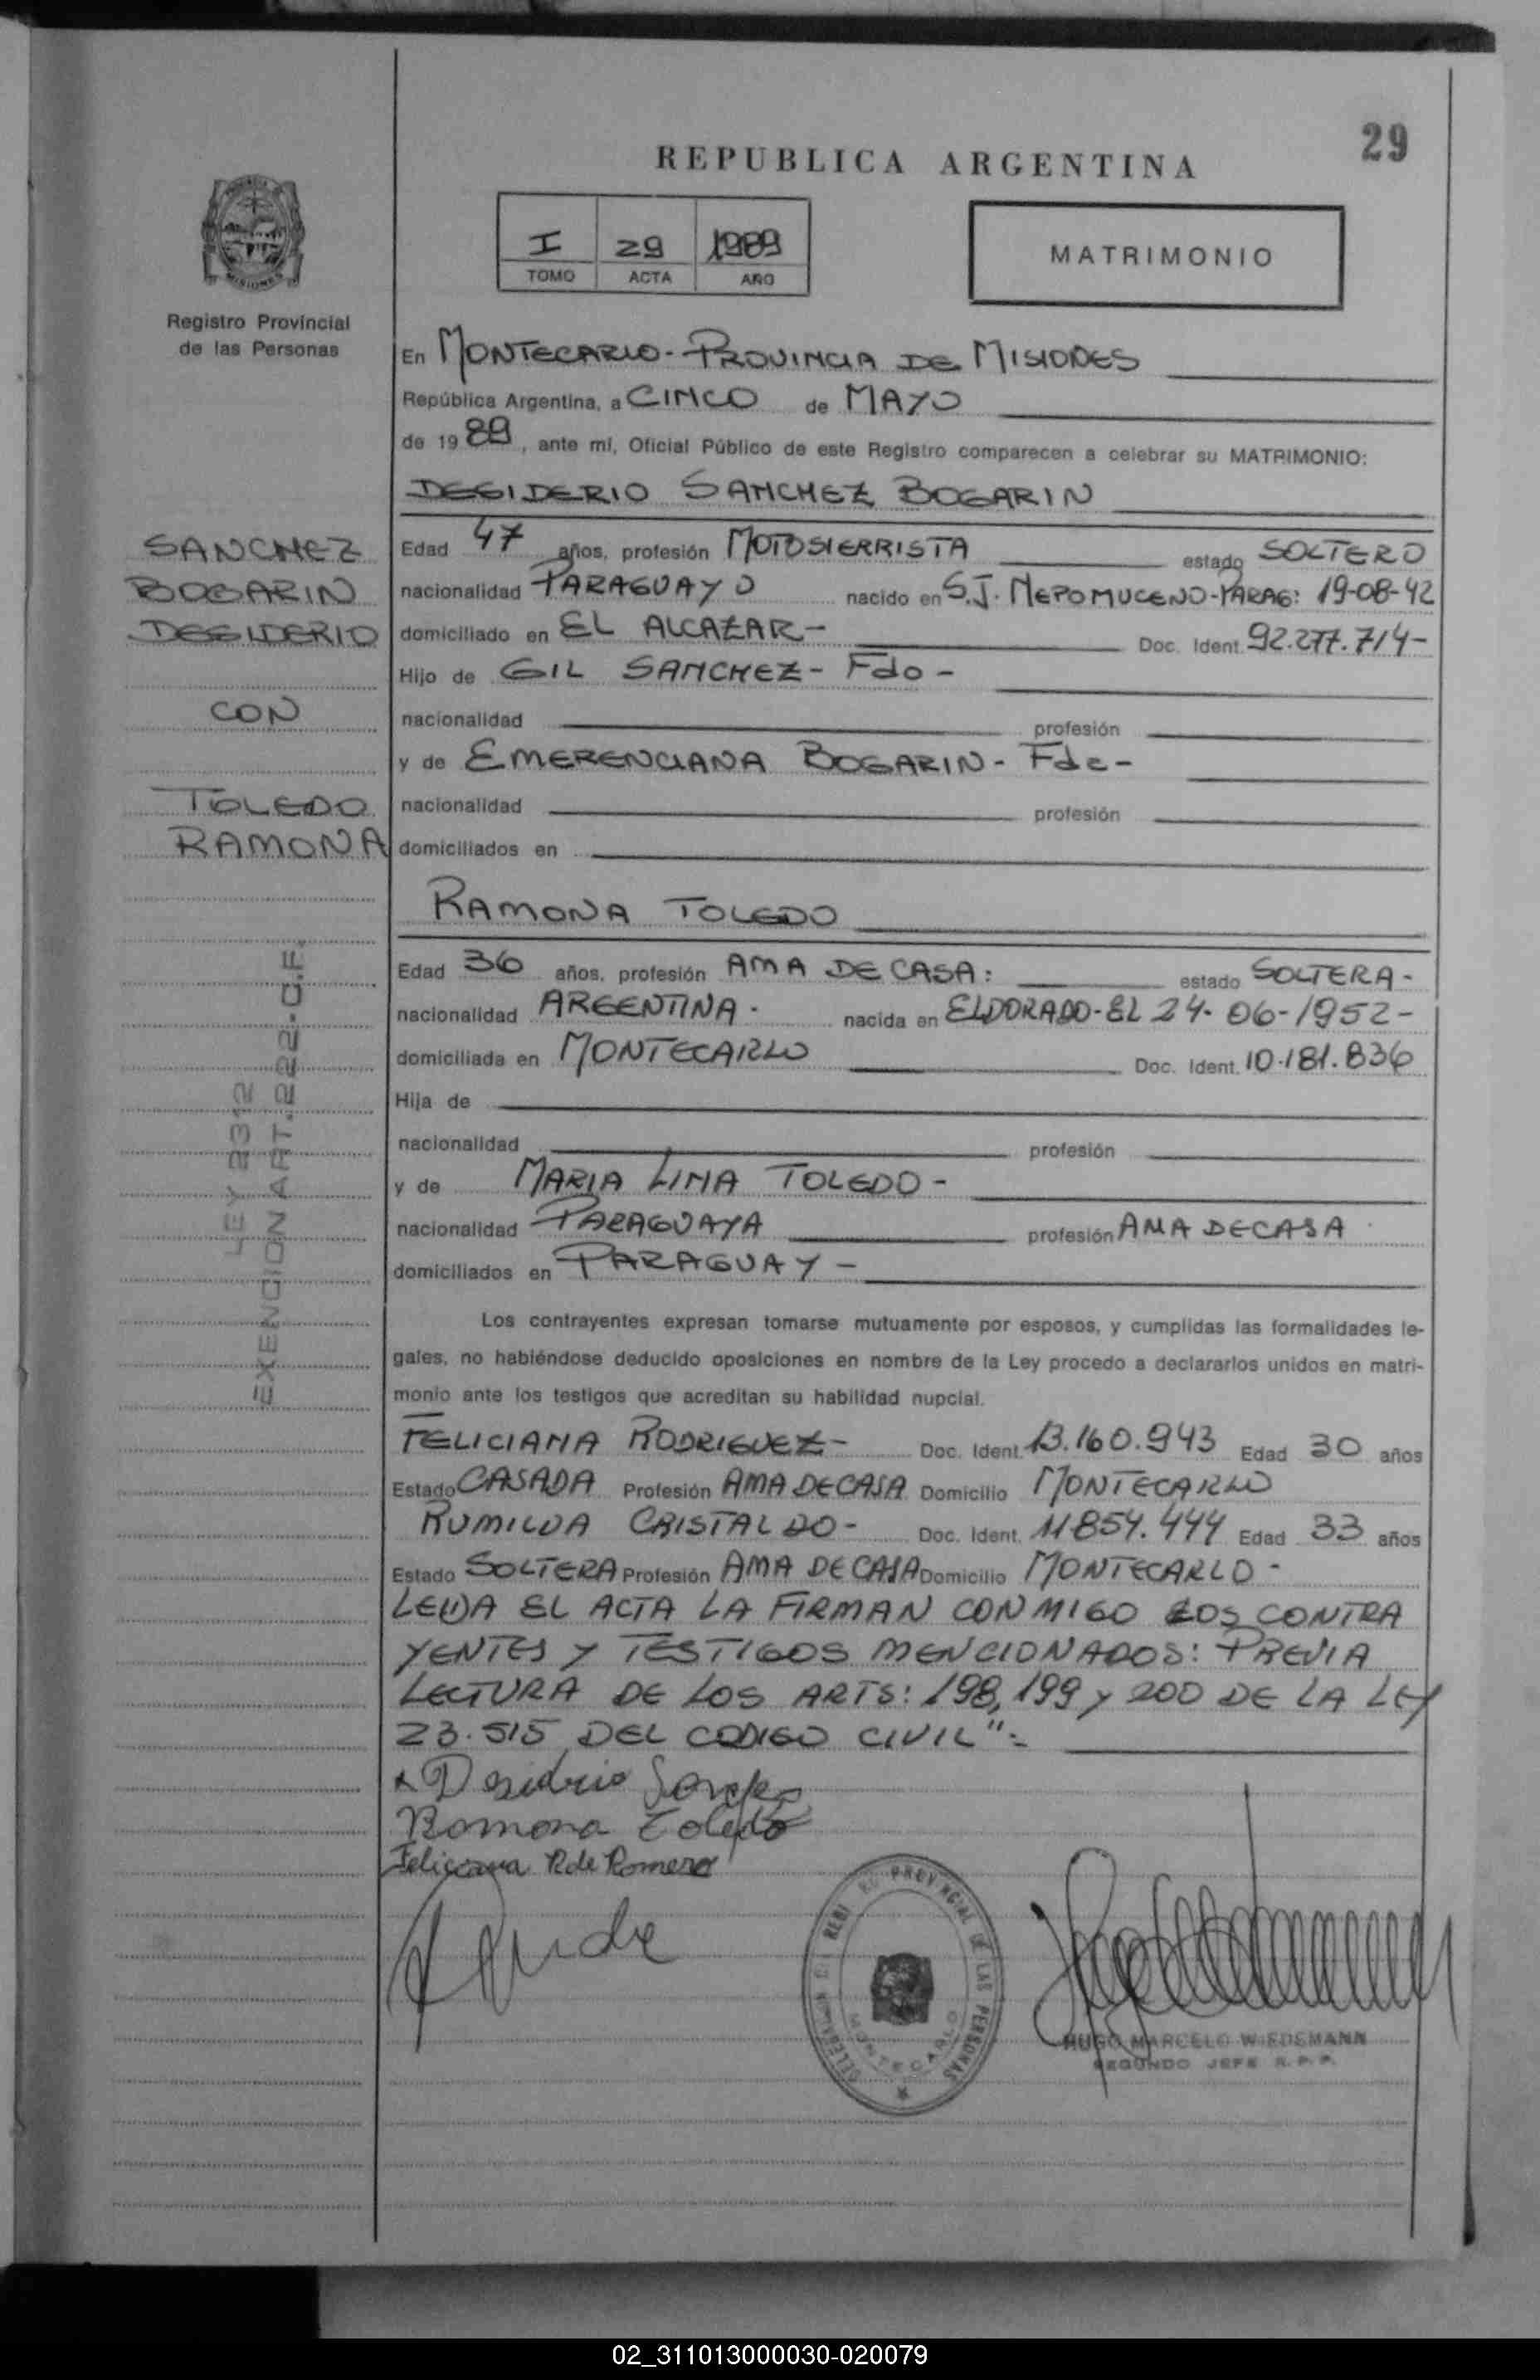 29
REPUBLICA ARGENTINA
I 29 1989
TOMO ACTA AÑO
MATRIMONIO
Registro Provincial
de las Personas
En MONTECARLO - PROVINCIA DE MISIONES
República Argentina, a CINCO de MAYO
de 1989, ante mí, Oficial Público de este Registro comparecen a celebrar su MATRIMONIO:
DESIDERIO SANCHEZ BOGARIN
SANCHEZ
BOGARIN
DESIDERIO
CON
TOLEDO
RAMONA
LEY 2312
EXENCION ART. 222-C.F.
Edad 47 años, profesión MOTOSIERRISTA estado SOLTERO
nacionalidad PARAGUAYO nacido en S.J. NEPOMUCENO-PARAG: 19-08-42
domiciliado en EL ALCAZAR- Doc. Ident. 92.277.714-
Hijo de GIL SANCHEZ- Fdo-
nacionalidad profesión
y de EMERENCIANA BOGARIN- Fda-
nacionalidad profesión
domiciliados en
RAMONA TOLEDO
Edad 36 años, profesión AMA DE CASA: estado SOLTERA-
nacionalidad ARGENTINA. nacida en ELDORADO-EL 24-06-1952-
domiciliada en MONTECARLO Doc. Ident. 10.181.836
Hija de
nacionalidad profesión
y de MARIA LINA TOLEDO-
nacionalidad PARAGUAYA profesión AMA DE CASA
domiciliados en PARAGUAY-
Los contrayentes expresan tomarse mutuamente por esposos, y cumplidas las formalidades le-
gales, no habiéndose deducido oposiciones en nombre de la Ley procedo a declararlos unidos en matri-
monio ante los testigos que acreditan su habilidad nupcial.
FELICIANA RODRIGUEZ- Doc. Ident. 13.160.943 Edad 30 años
Estado CASADA Profesión AMA DE CASA Domicilio MONTECARLO
RUMILDA CRISTALDO- Doc. Ident. 11854.444 Edad 33 años
Estado SOLTERA Profesión AMA DE CASA Domicilio MONTECARLO-
LEIDA EL ACTA LA FIRMAN CONMIGO LOS CONTRA
YENTES Y TESTIGOS MENCIONADOS: PREVIA
LECTURA DE LOS ARTS: 198, 199 y 200 DE LA LEY
23.515 DEL CODIGO CIVIL":
Ramona Toledo
Feliciana R de Romero
PROVINCIAL DE LAS PERSONAS
MONTECARLO
HUGO MARCELO WIEDEMANN
SEGUNDO JEFE R.P.P.
02_311013000030-020079